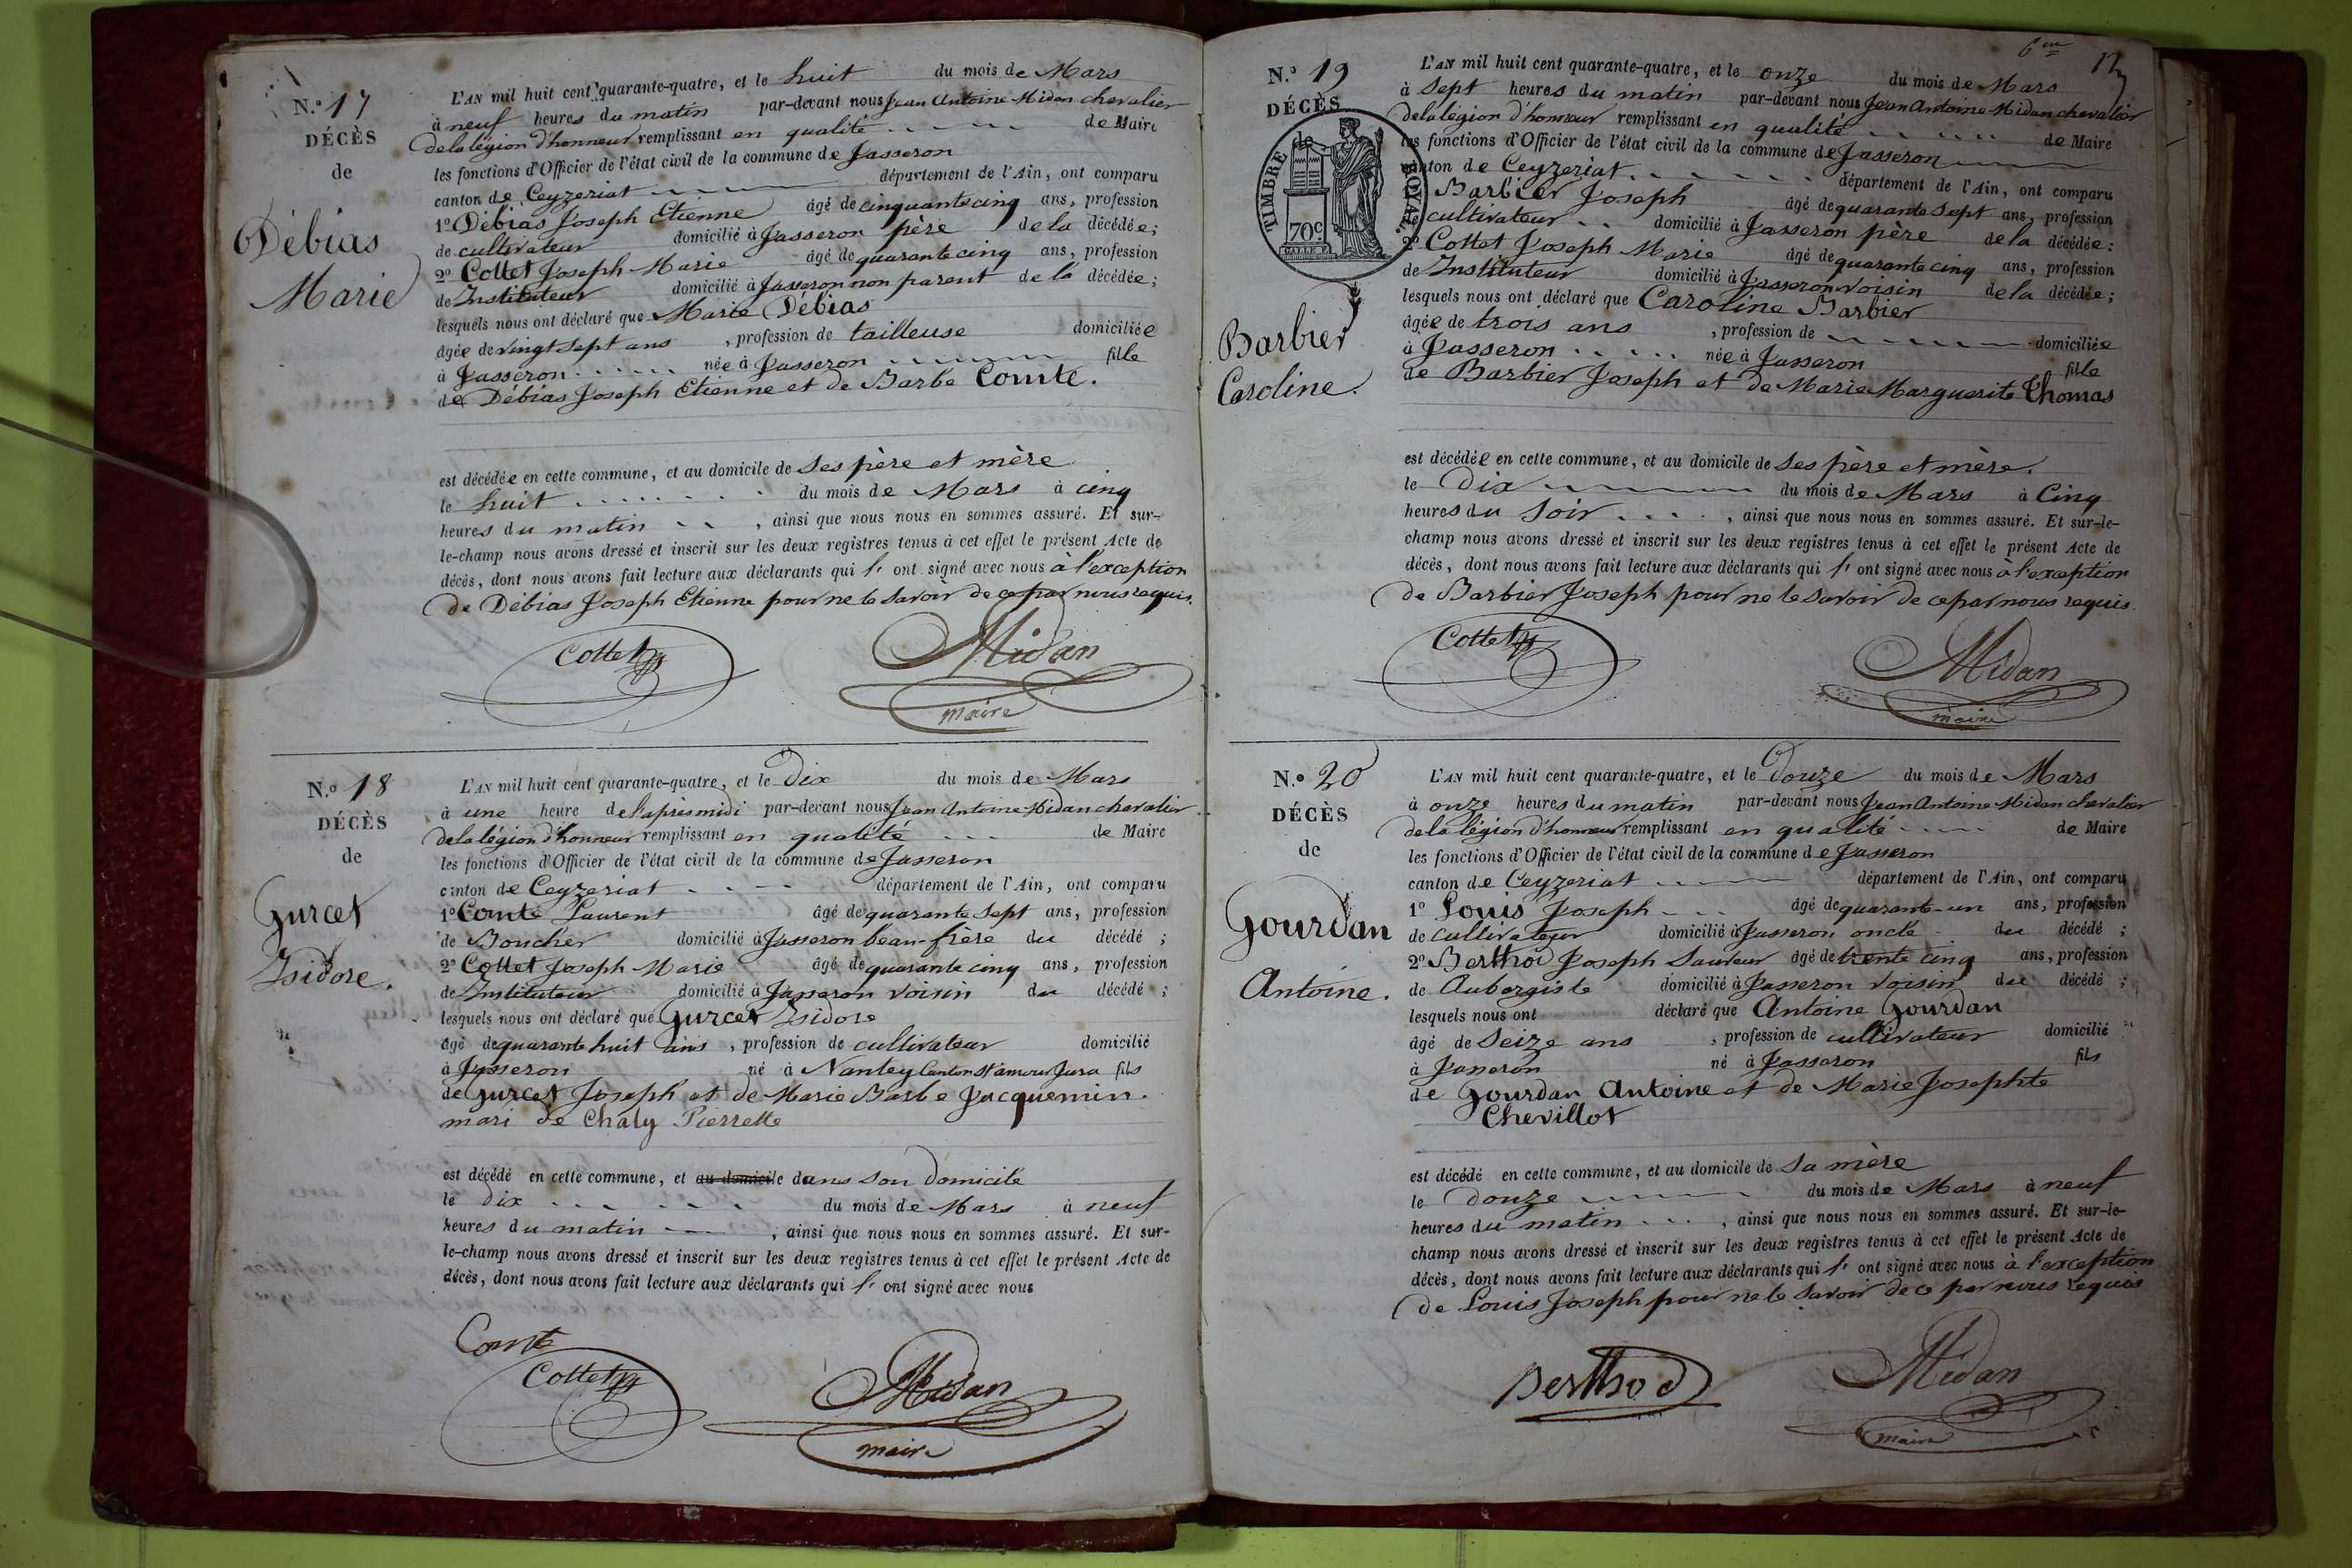 N.° 17
DÉCÈS
de
Débias
Marie
L'AN mil huit cent quarante-quatre, et le huit du mois de Mars
à neuf heures du matin par-devant nous Jean Antoine Midan chevalier
de la légion d'honneur remplissant en qualité de Maire
les fonctions d'Officier de l'état civil de la commune de Jasseron
canton de Ceyzeriat département de l'Ain, ont comparu
1° Débias Joseph Etienne âgé de cinquante cinq ans, profession
de cultivateur domicilié à Jasseron père de la décédée;
2° Cottet Joseph Marie âgé de quarante cinq ans, profession
de Instituteur domicilié à Jasseron non parent de la décédée;
lesquels nous ont déclaré que Marie Débias
âgée de vingt sept ans , profession de tailleuse domiciliée
à Jasseron née à Jasseron fille
de Débias Joseph Etienne et de Barbe Comte.
est décédée en cette commune, et au domicile de ses père et mère
le huit du mois de Mars à cinq
heures du matin , ainsi que nous nous en sommes assuré. Et sur-
le-champ nous avons dressé et inscrit sur les deux registres tenus à cet effet le présent Acte de
décès, dont nous avons fait lecture aux déclarants qui l' ont signé avec nous à l'exception
de Débias Joseph Etienne pour ne le savoir de ce par nous requis.
Cottet Midan
maire
N.° 18
DÉCÈS
de
Gurcet
Isidore.
L'AN mil huit cent quarante-quatre, et le Dix du mois de Mars
à une heure de l'après midi par-devant nous Jean Antoine Midan chevalier
de la légion d'honneur remplissant en qualité de Maire
les fonctions d'Officier de l'état civil de la commune de Jasseron
canton de Ceyzeriat département de l'Ain, ont comparu
1° Comte Laurent âgé de quarante sept ans, profession
de Boucher domicilié à Jasseron beau-frère du décédé ;
2° Cottet Joseph Marie âgé de quarante cinq ans, profession
de Instituteur domicilié à Jasseron voisin du décédé ;
lesquels nous ont déclaré que Gurcet Isidore
âgé de quarante huit ans , profession de cultivateur domicilié
à Jasseron né à Nantey Canton St amour Jura fils
de Gurcet Joseph et de Marie Barbe Jacquemin.
mari de Chaly Pierrette
est décédé en cette commune, et au domicile dans son domicile
le dix du mois de Mars à neuf
heures du matin , ainsi que nous nous en sommes assuré. Et sur-
le-champ nous avons dressé et inscrit sur les deux registres tenus à cet effet le présent Acte de
décès, dont nous avons fait lecture aux déclarants qui l' ont signé avec nous
Comte
Cottet Midan
maire
6me
N.° 19
DÉCÈS
de
TIMBRE ROYAL.
70c.
Barbier
Caroline.
L'AN mil huit cent quarante-quatre, et le onze du mois de Mars
à sept heures du matin par-devant nous Jean Antoine Midan chevalier
de la légion d'honneur remplissant en qualité de Maire
les fonctions d'Officier de l'état civil de la commune de Jasseron
canton de Ceyzeriat département de l'Ain, ont comparu
Barbier Joseph âgé de quarante sept ans, profession
de cultivateur domicilié à Jasseron père de la décédée;
2° Cottet Joseph Marie âgé de quarante cinq ans, profession
de Instituteur domicilié à Jasseron voisin de la décédée;
lesquels nous ont déclaré que Caroline Barbier
âgée de trois ans , profession de domiciliée
à Jasseron née à Jasseron fille
de Barbier Joseph et de Marie Marguerite Thomas
est décédée en cette commune, et au domicile de ses père et mère.
le Dix du mois de Mars à Cinq
heures du soir , ainsi que nous nous en sommes assuré. Et sur-le-
champ nous avons dressé et inscrit sur les deux registres tenus à cet effet le présent Acte de
décès, dont nous avons fait lecture aux déclarants qui l' ont signé avec nous à l'exception
de Barbier Joseph pour ne le savoir de ce par nous requis.
Cottet Midan
maire
N.° 20
DÉCÈS
de
Gourdan
Antoine.
L'AN mil huit cent quarante-quatre, et le Douze du mois de Mars
à onze heures du matin par-devant nous Jean Antoine Midan chevalier
de la légion d'honneur remplissant en qualité de Maire
les fonctions d'Officier de l'état civil de la commune de Jasseron
canton de Ceyzeriat département de l'Ain, ont comparu
1° Louis Joseph âgé de quarante-un ans, profession
de cultivateur domicilié à Jasseron oncle du décédé ;
2° Berthod Joseph Sauveur âgé de trente cinq ans, profession
de Aubergiste domicilié à Jasseron voisin du décédé ;
lesquels nous ont déclaré que Antoine Gourdan
âgé de seize ans , profession de cultivateur domicilié
à Jasseron né à Jasseron fils
de Gourdan Antoine et de Marie Josephte
Chevillot
est décédé en cette commune, et au domicile de sa mère
le Douze du mois de Mars à neuf
heures du matin , ainsi que nous nous en sommes assuré. Et sur-le-
champ nous avons dressé et inscrit sur les deux registres tenus à cet effet le présent Acte de
décès, dont nous avons fait lecture aux déclarants qui l' ont signé avec nous à l'exception
de Louis Joseph pour ne le savoir de ce par nous requis
Berthod Midan
maire